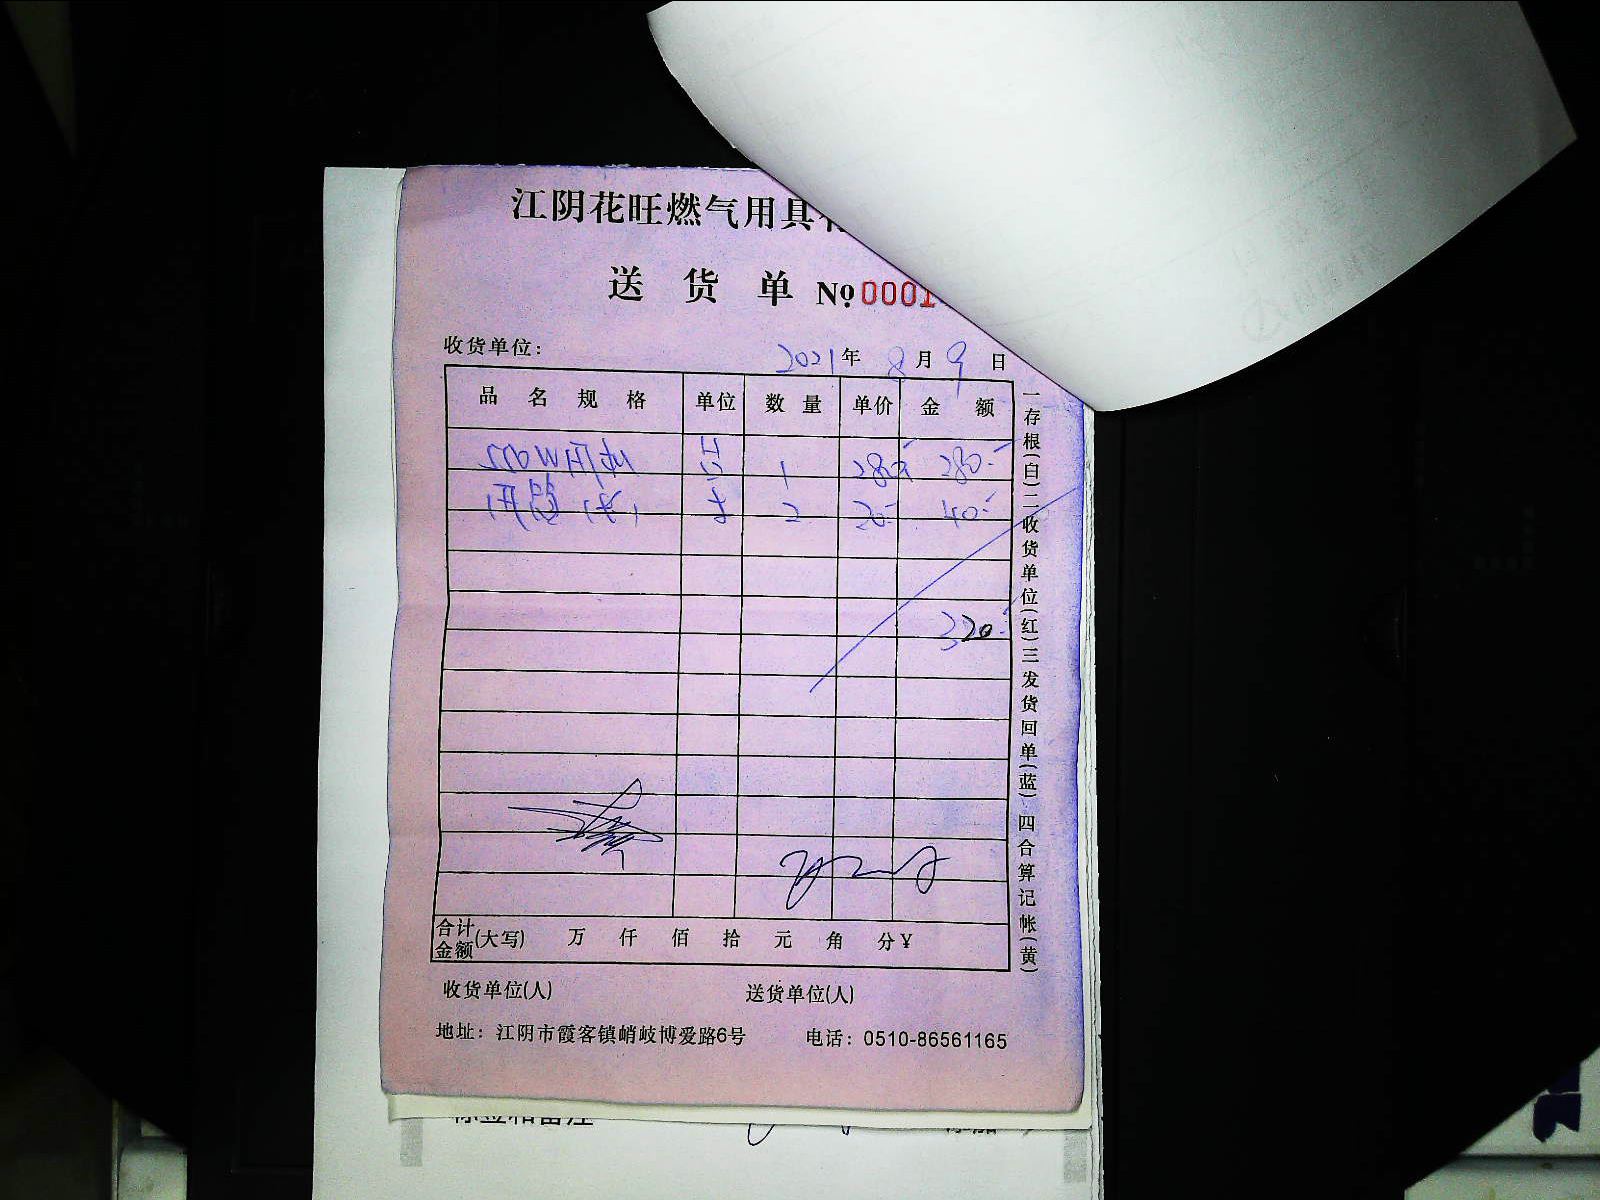 江阴花旺燃气用具
送 货 单 №0001
收货单位： 2021年 8月9日
品 名 规 格 单位 数 量 单价 金 额
台 1 280 280.-
2 20.- 40.-
320.-
合计金额(大写) 万 仟 佰 拾 元 角 分¥
收货单位(人) 送货单位(人)
地址：江阴市霞客镇峭岐博爱路6号 电话：0510-86561165
一存根(白)二收货单位(红)三发货回单(蓝)四合算记帐(黄)